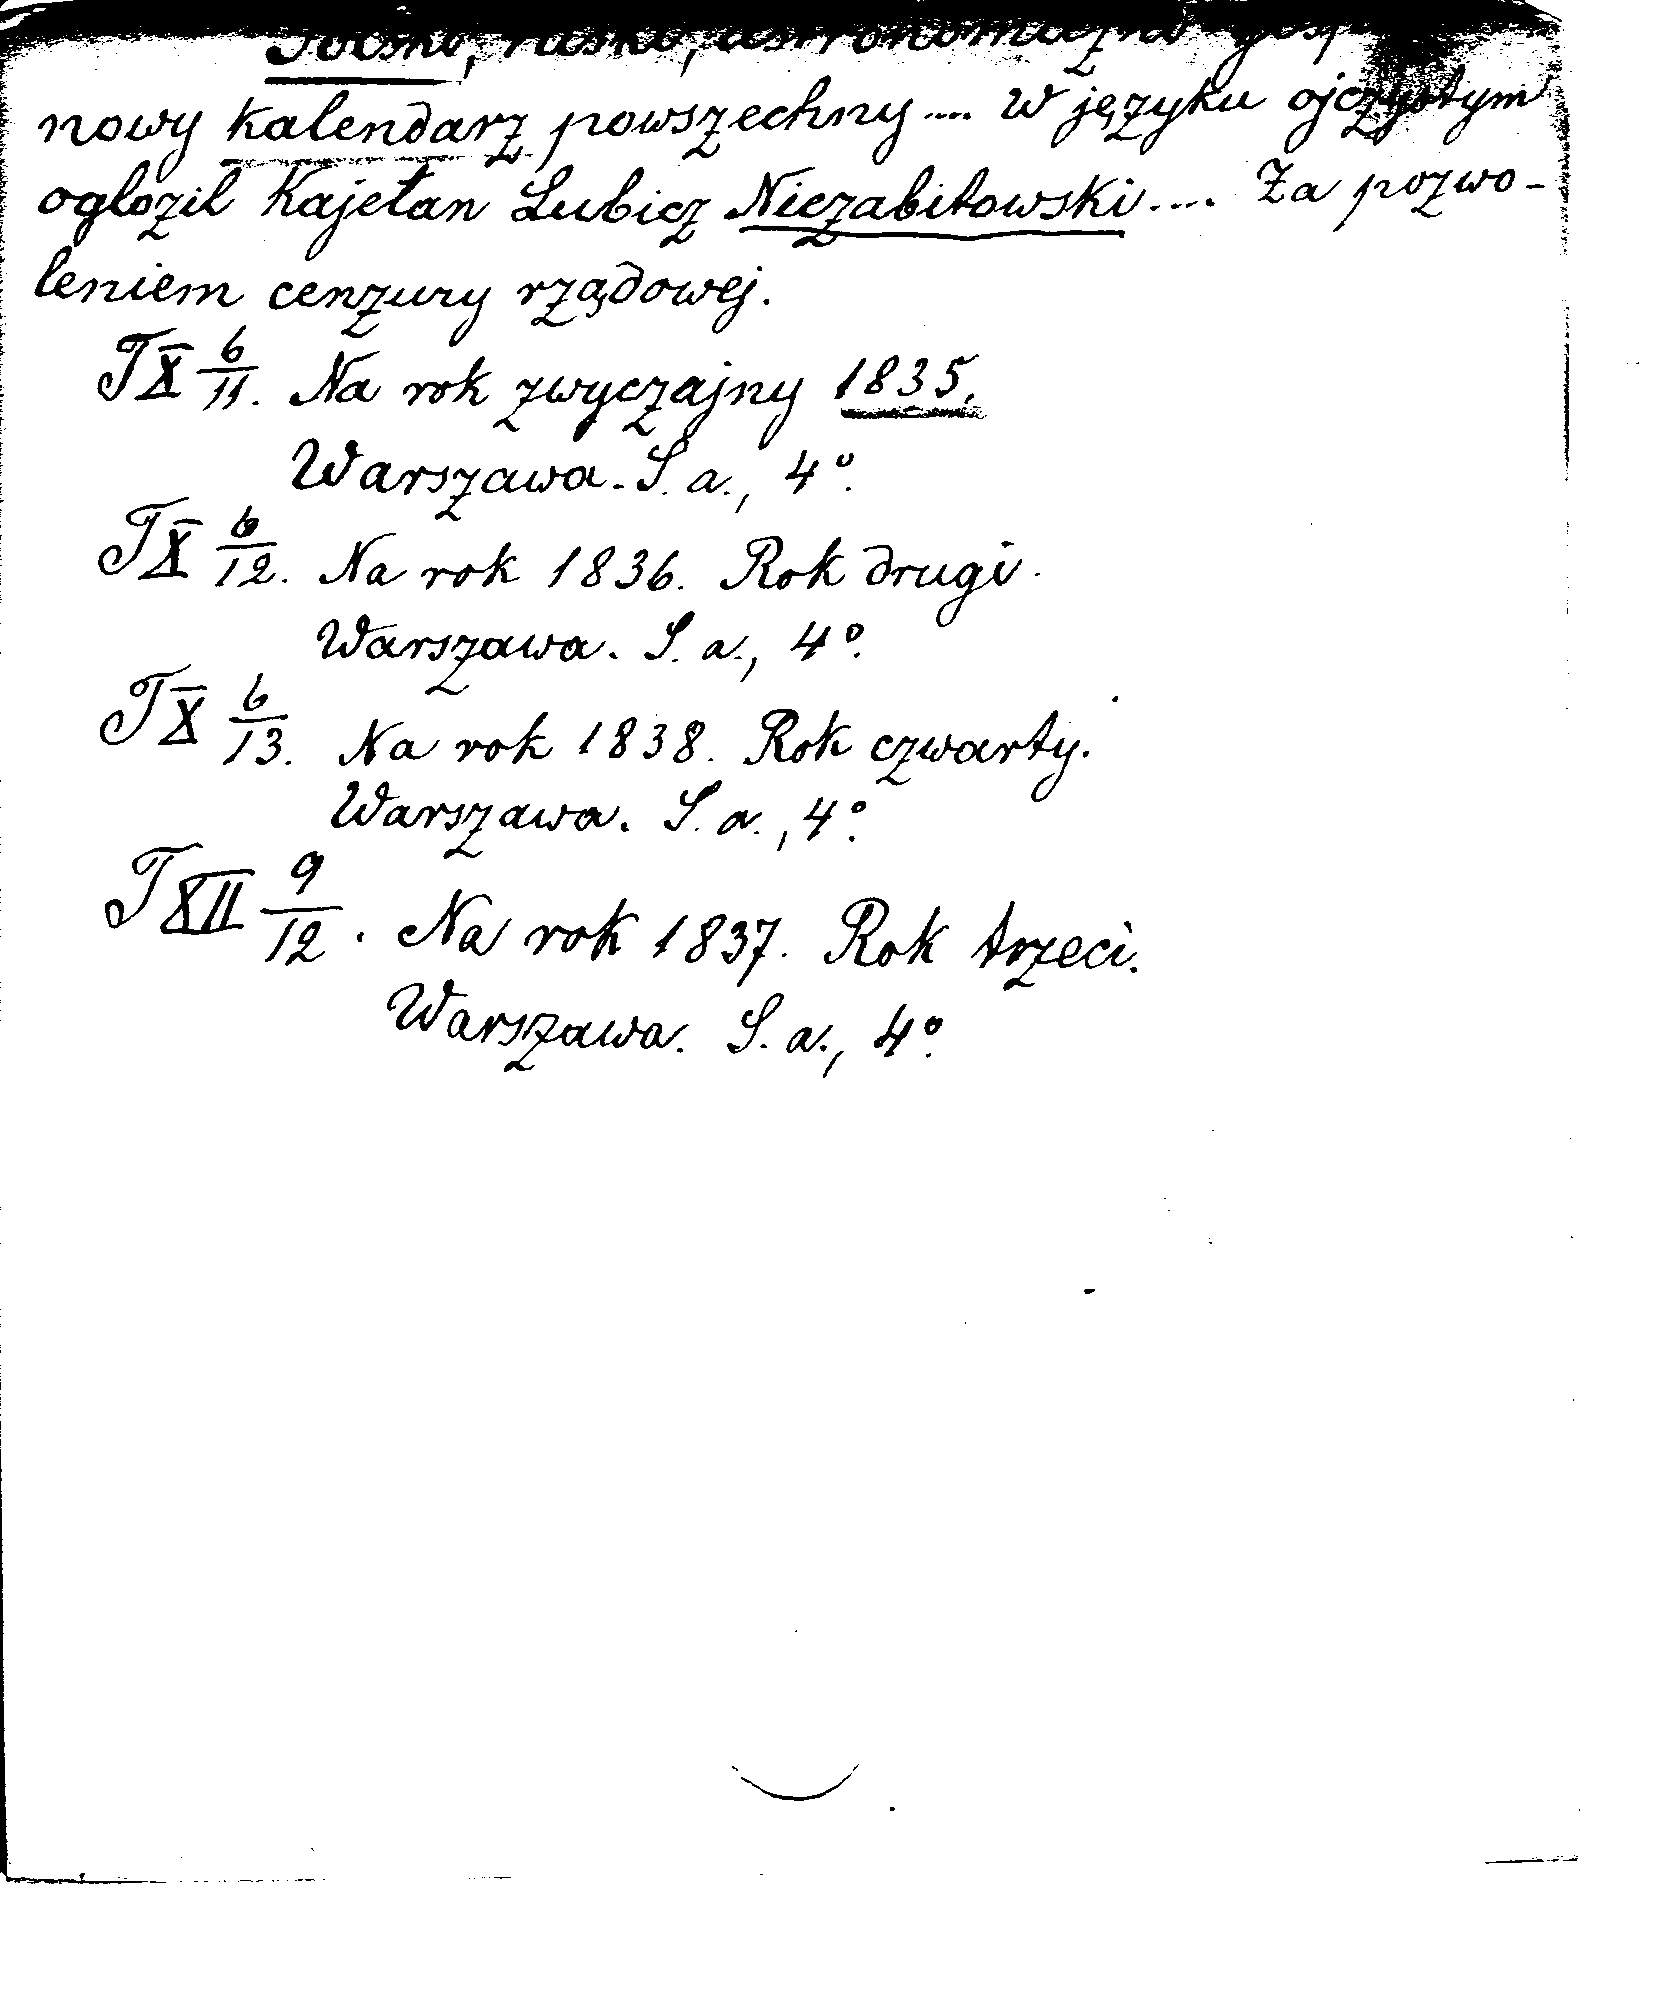 Polsko, rusko, astronomiczno gosp
nowy kalendarz powszechny .... w języku ojczystym
ogłozil Kajetan Lubicz Niezabitowski .... Za pozwo-
leniem cenzury rządowej.
T X 6/11. Na rok zwyczajny 1835.
Warszawa. S. a., 4º.
T X 6/12. Na rok 1836. Rok drugi.
Warszawa. S. a., 4º.
T X 6/13. Na rok 1838. Rok czwarty.
Warszawa. S. a., 4º.
T XII 9/12. Na rok 1837. Rok trzeci.
Warszawa. S. a., 4º.